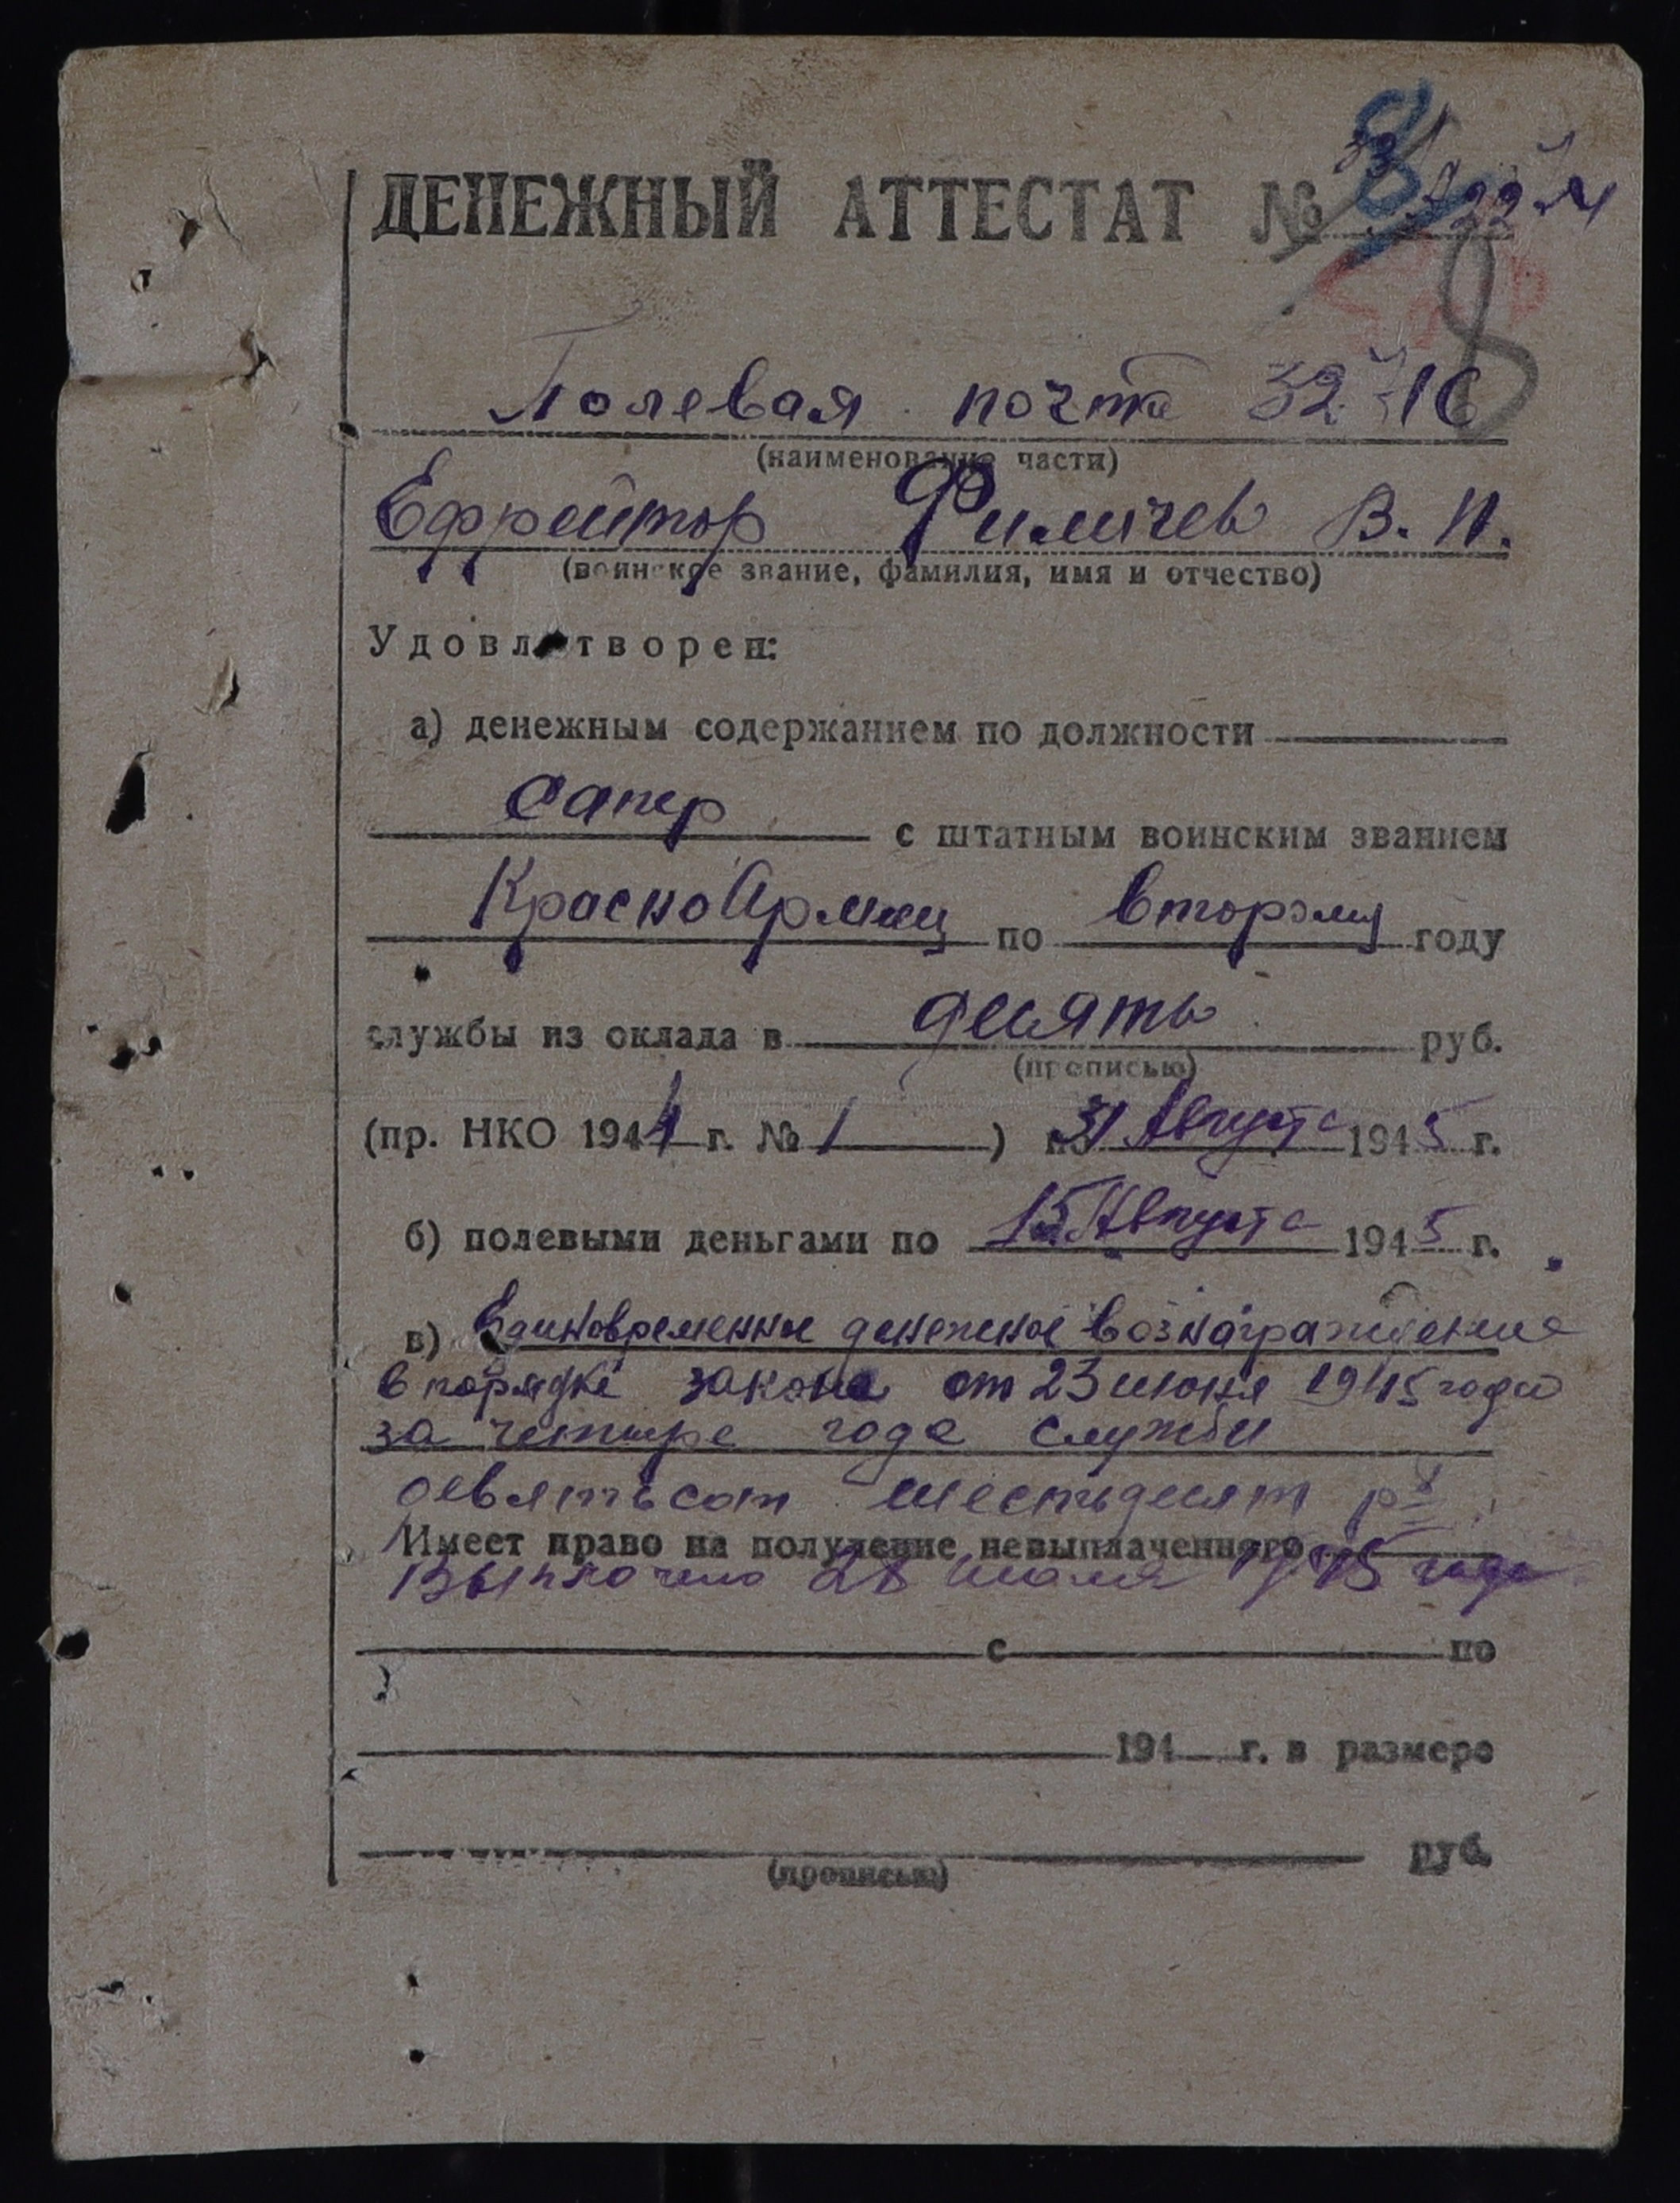 ДЕНЕЖНЫЙ АТТЕСТАТ №
8
Полевая почта
(наименование части)
Ефрейтор Филичев В. И.
(воинское звание, фамилия, имя и отчество)
Удовлетворен:
а) денежным содержанием по должности
Сапер с штатным воинским званием
КрасноАрмеец по второму году
службы из оклада в десять руб.
(прописью)
(пр. НКО 1944 г. № 1 ) по 31 Августа 1945 г.
б) полевыми деньгами по 15 Августа 1945 г.
в) Единовременное денежное вознаграждение
в порядке закона от 23 июня 1945 года
за четыре года службы
девятьсот шестьдесят
Имеет право на получение невыплаченного
Выплочено 28 1945 года
с по
194 г. в размере
руб.
(прописью)